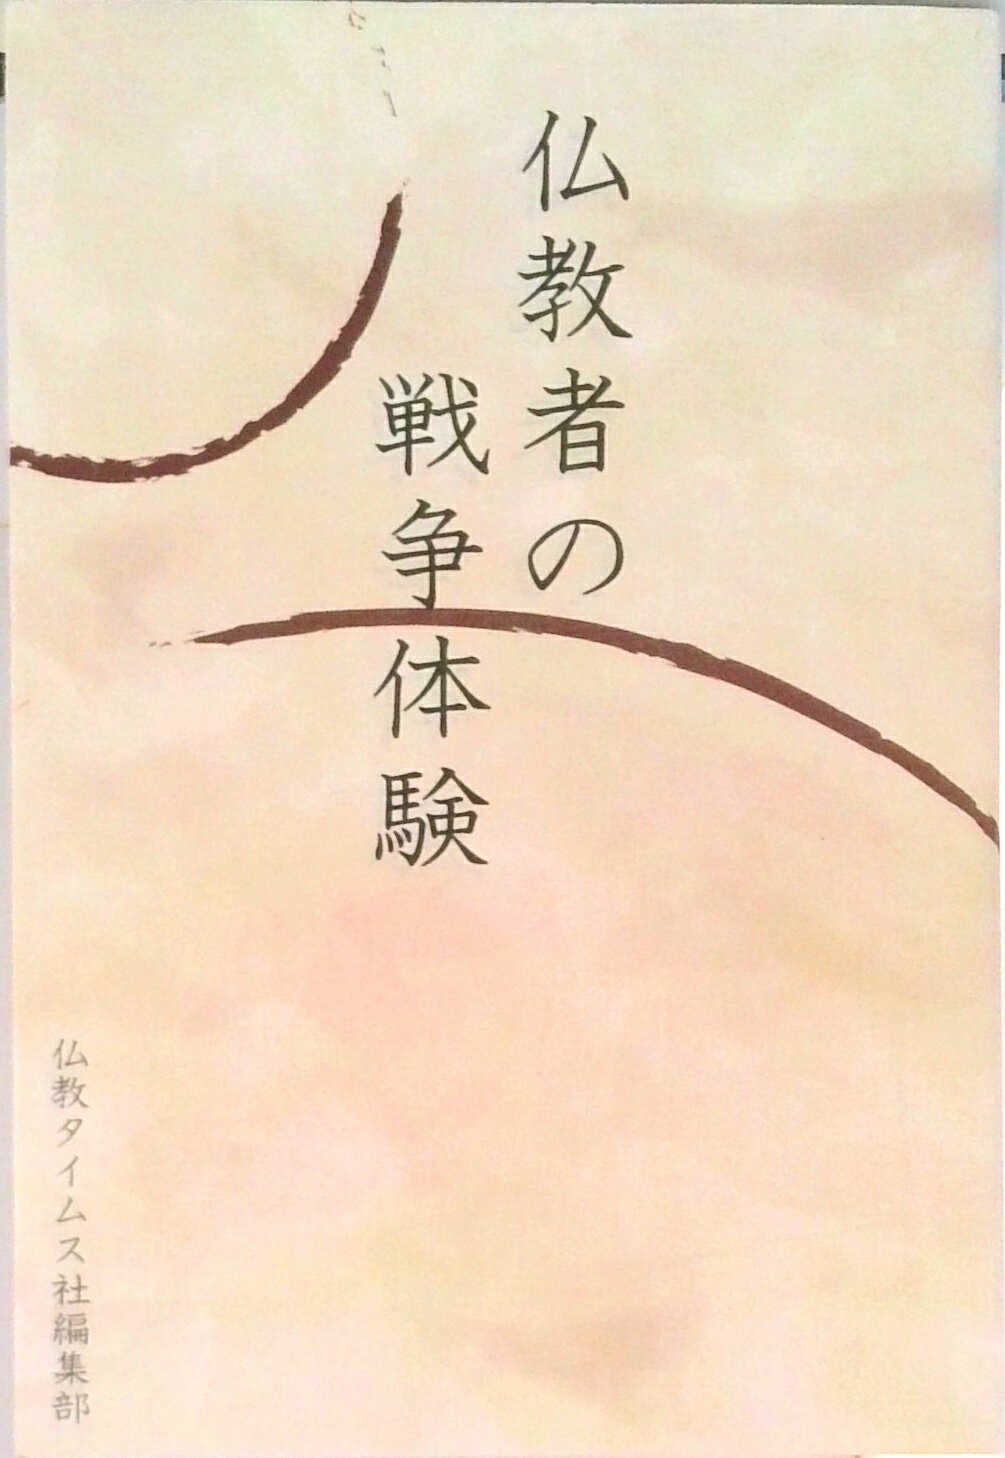 仏教者の
戦争体験
仏教タイムス社編集部